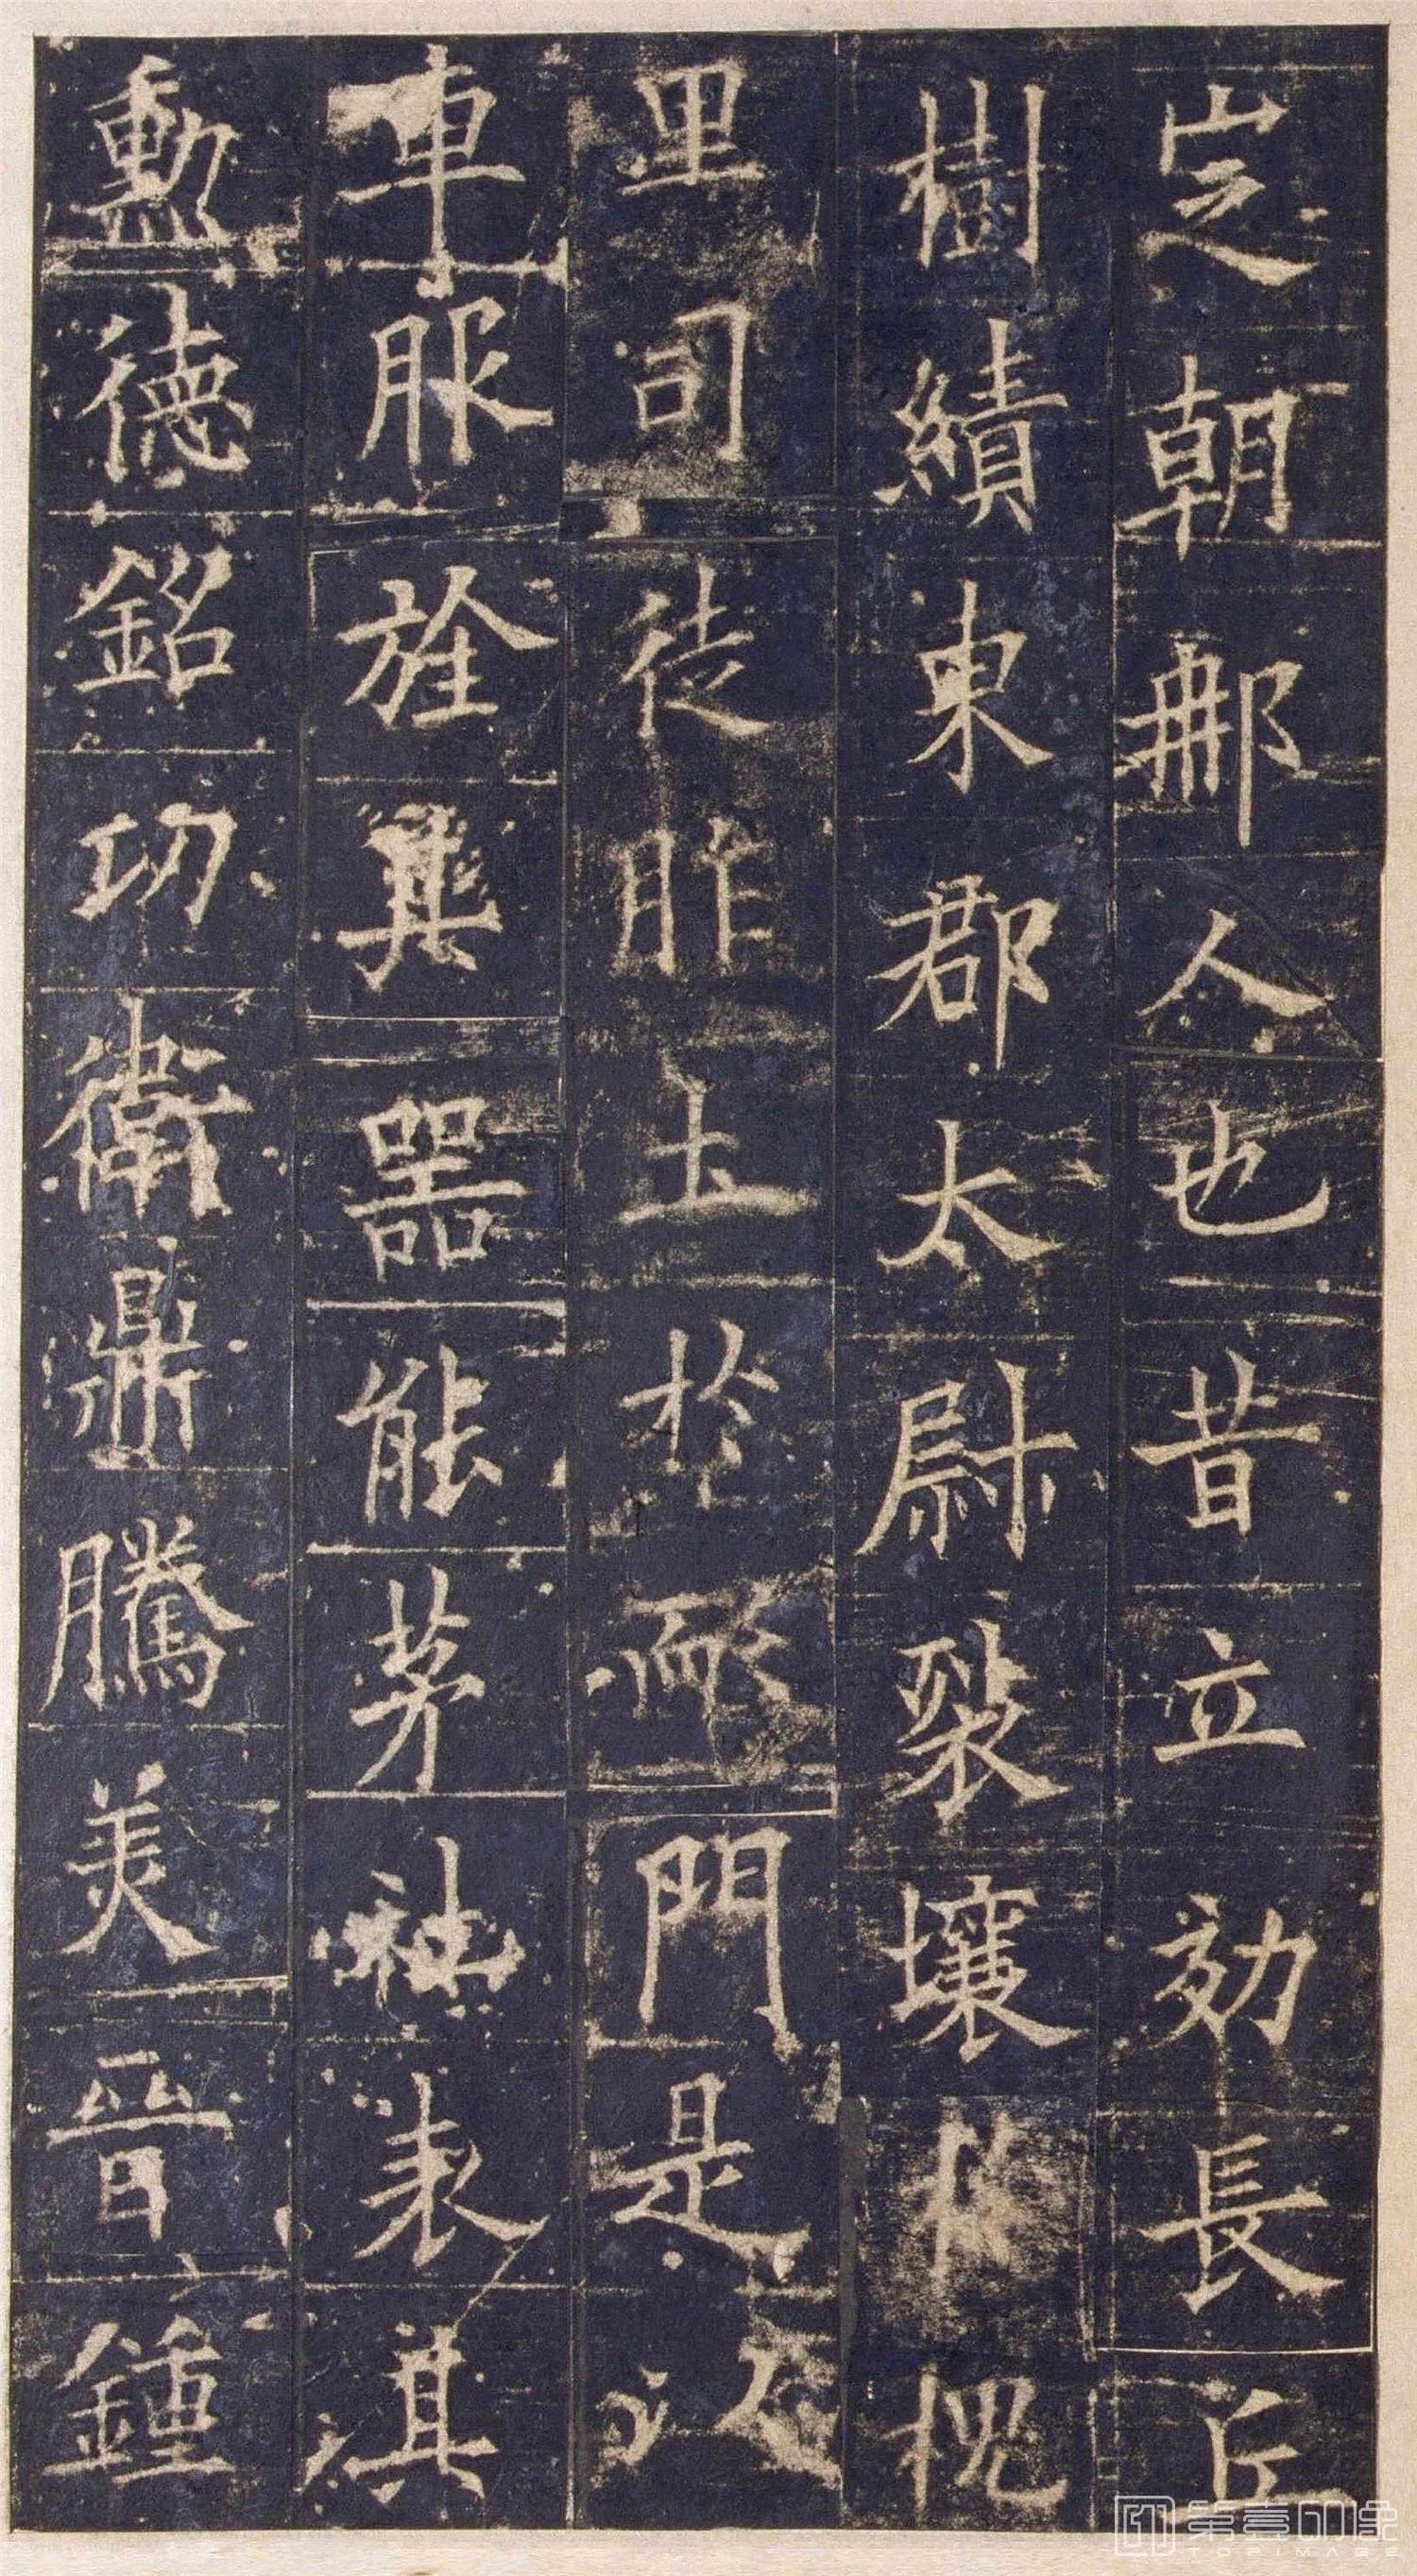 定朝那人也昔立効長丘
樹績東郡太尉裂壤於槐
里司徒胙土於耏門是以
車服旌其器能茅社表其
勳德銘功衛鼎騰美晉鍾
第壹印像
TOPIMAGE